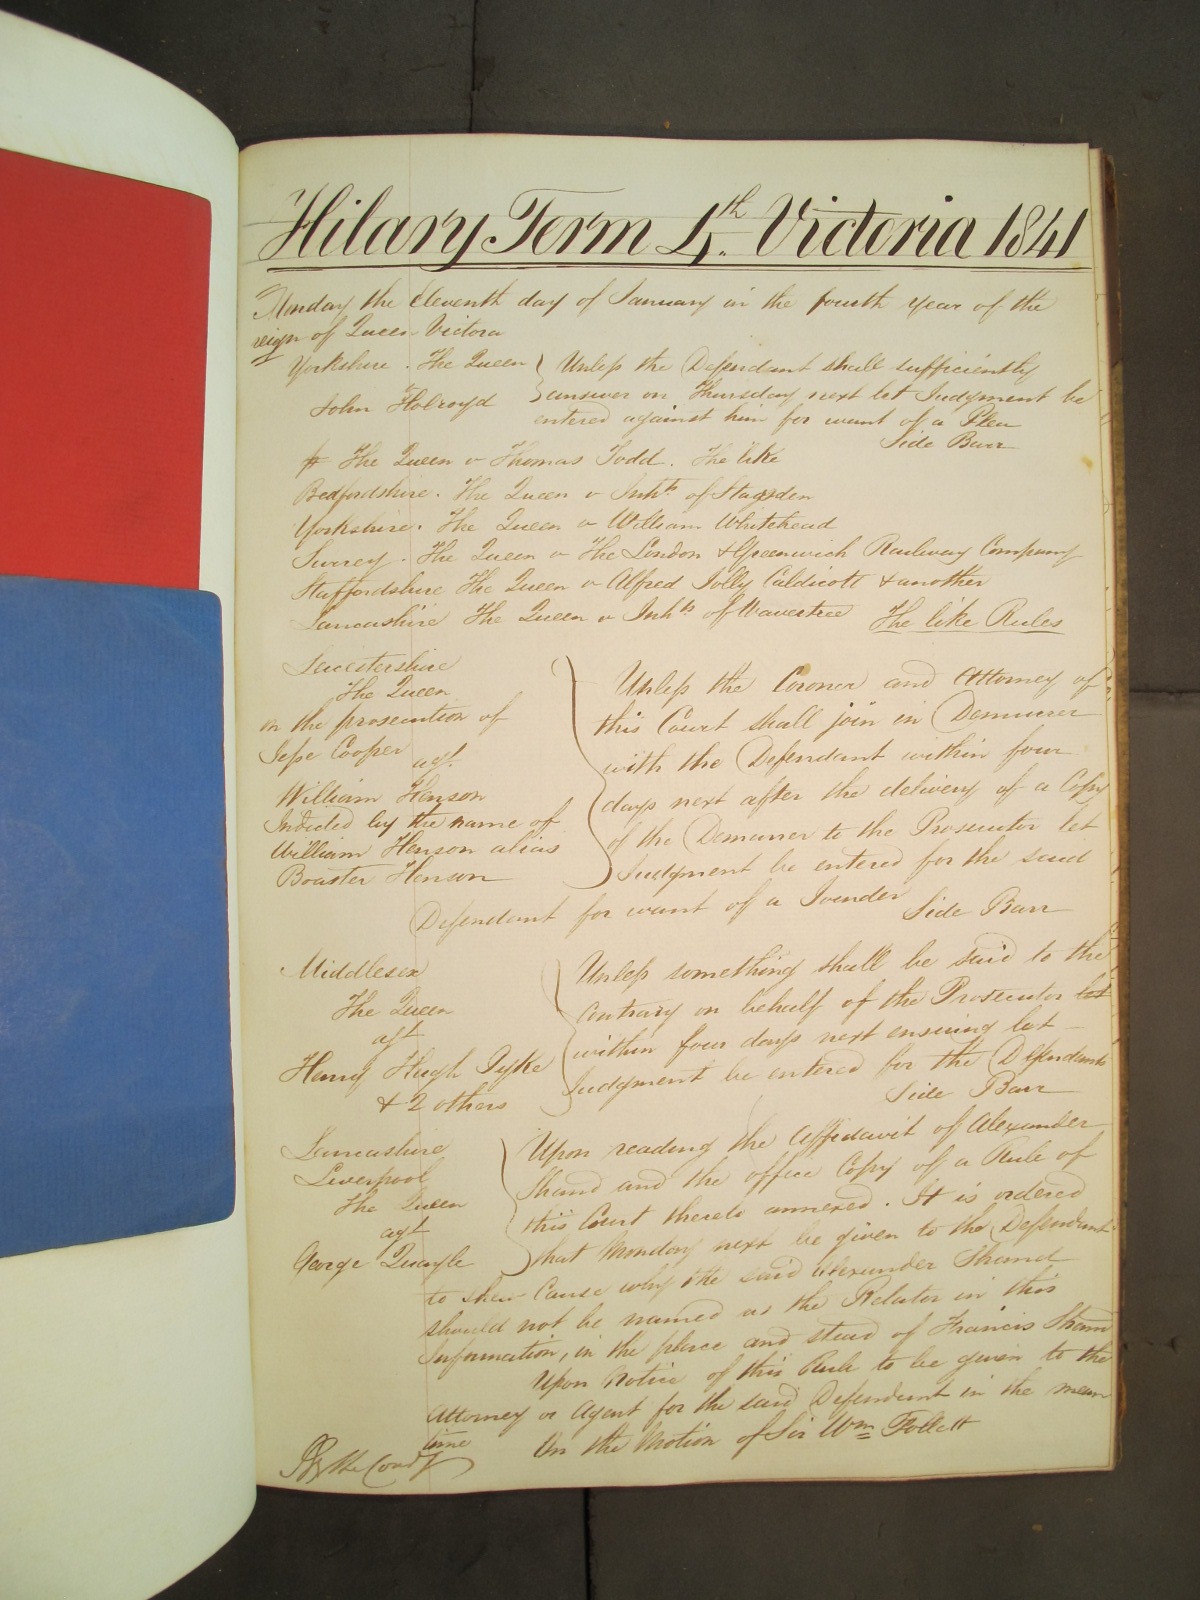 Hilary Term 4th. Victoria 1841
Monday the Eleventh day of January in the fourth Year of the
reign of Queen Victora
Yorkshire. The Queen Unless the Defendant shall sufficiently
v
John Holroyd answer on Thursday next let Judgment be
entered against him for want of a Plea
Side Barr
The Queen v Thomas Todd. The like
Bedfordshire. The Queen v Inhts of Stagsden
Yorkshire. The Queen v William Whitehead
Surrey. The Queen v The London & Greenwich Railway Company
Staffordshire The Queen v Alfred Jolly Caldicott & another
Lancashire The Queen v Inhts of Wavertree The like Rules
Leicestershire
The Queen
on the prosecution of
Jesse Cooper
agt.
William Henson
Indicted by the name of
William Henson alias
Boaster Henson
Unless the Coroner and Attorney of
this Court shall join in Demurrer
with the Defendant within four
days next after the delivery of a Copy
of the Demurrer to the Prosecutor let
Judgment be entered for the said
Defendant for want of a Joinder
Side Barr
Middlesex
The Queen
agt
Henry Hugh Pyke
& 2 others
Unless something shall be said to the
Contrary on behalf of the Prosecutor let
within four days next ensuing let
Judgment be entered for the Defendants
Side Barr
Lancashire
Liverpool
The Queen
agt
George Quayle
Upon reading the Affidavit of Alexander
Shand and the office Copy of a Rule of
this Court thereto annexed. It is ordered
that Monday next be given to the Defendant
to shew Cause why the said Alexander Shand
should not be named as the Relator in this
Information, in the place and stead of Francis Shand
Upon Notice of this Rule to be given to the
Attorney or Agent for the said Defendant in the mean
time On the Motion of Sir Wm Follett
By the Court